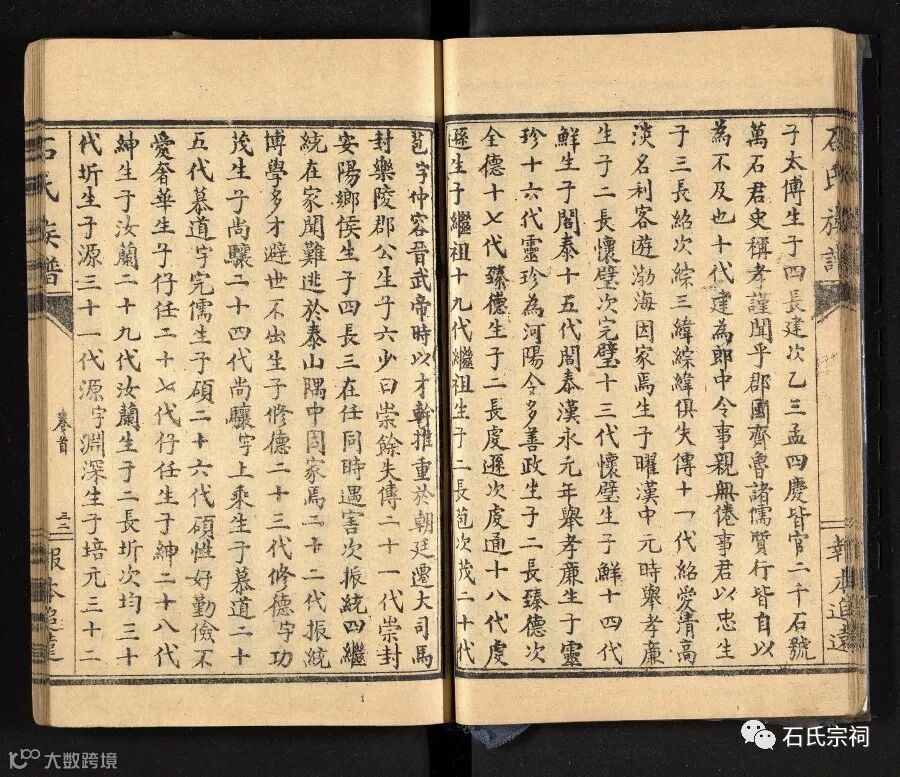 石氏族譜
報本追遠
子太傅生子四長建次乙三孟四慶皆官二千石號
萬石君史稱孝謹聞乎郡國齊魯諸儒質行皆自以
為不及也十代建為郎中令事親無倦事君以忠生
子三長紹次綜三緯綜緯俱失傳十一代紹愛清高
淡名利客遊渤海因家焉生子曜漢中元時舉孝廉
生子二長懷璧次完璧十三代懷璧生子鮮十四代
鮮生子閣泰十五代閣泰漢永元年舉孝廉生子靈
珍十六代靈珍為河陽令多善政生子二長臻德次
全德十七代臻德生子二長虔遜次虔通十八代虔
遜生子繼祖十九代繼祖生子二長苞次茂二十代
苞字仲容晉武帝時以才幹推重於朝廷遷大司馬
封樂陵郡公生子六少曰崇餘失傳二十一代崇封
安陽鄉侯生子四長三在任同時遇害次振統四繼
統在家聞難逃於泰山隅中因家焉二十二代振統
博學多才避世不出生子修德二十三代修德字功
茂生子尚驤二十四代尚驤字上乘生子慕道二十
五代慕道字完儒生子碩二十六代碩性好勤儉不
愛奢華生子仔任二十七代仔任生子紳二十八代
紳生子汝蘭二十九代汝蘭生子二長圻次均三十
代圻生子源三十一代源字淵深生子培元三十二
石氏族譜
卷首
三二
報本追遠
石氏宗祠
大数跨境